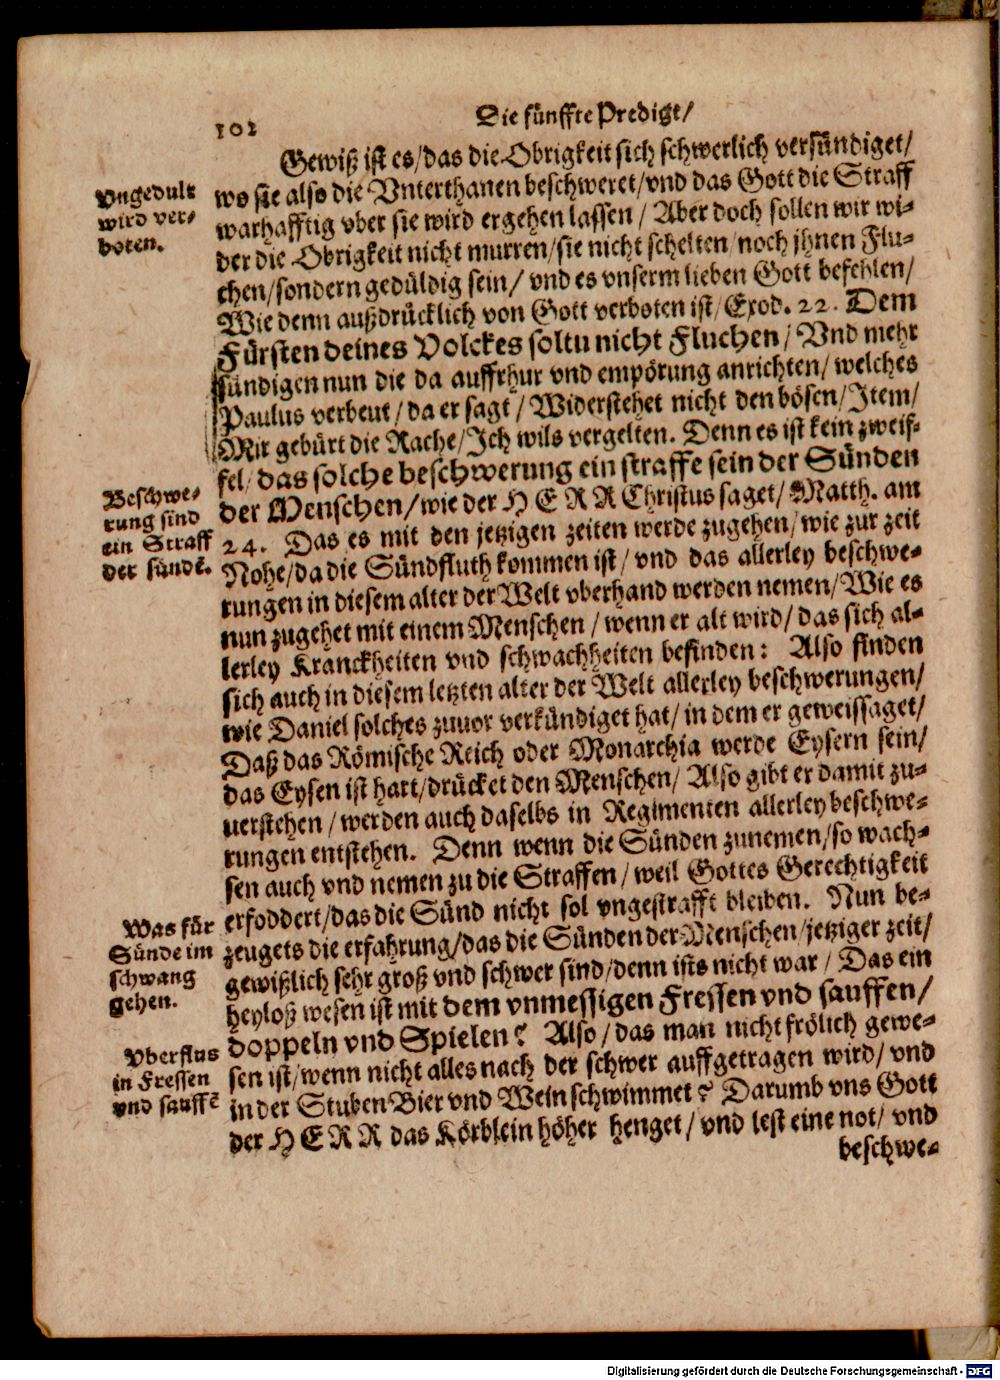 102
Die fünffte Predigt/
Gewiß ist es/das die Obrigkeit sich schwerlich versündiget/
wo sie also die Vnterthanen beschweret/vnd das Gott die Straff
warhafftig vber sie wird ergehen lassen/ Aber doch sollen wir wi-
der die Obrigkeit nicht murren/sie nicht schelten/noch jhnen Flu-
chen/sondern gedüldig sein/ vnd es vnserm lieben Gott befehlen/
Wie denn außdrücklich von Gott verboten ist/Exod. 22. Dem
Fürsten deines Volckes soltu nicht Fluchen/ Vnd mehr
sündigen nun die da auffrhur vnd empörung anrichten/ welches
Paulus verbeut/da er sagt/ Widerstehet nicht den bösen/Item/
Mir gebürt die Rache/Ich wils vergelten. Denn es ist kein zweif-
fel/das solche beschwerung ein straffe sein der Sünden
der Menschen/wie der HERR Christus saget/Matth. am
24. Das es mit den jetzigen zeiten werde zugehen/wie zur zeit
Nohe/da die Sündfluth kommen ist/ vnd das allerley beschwe-
rungen in diesem alter der Welt vberhand werden nemen/Wie es
nun zugehet mit einem Menschen/ wenn er alt wird/das sich al-
lerley Kranckheiten vnd schwachheiten befinden: Also finden
sich auch in diesem letzten alter der Welt allerley beschwerungen/
wie Daniel solches zuuor verkündiget hat/in dem er geweissaget/
Daß das Römische Reich oder Monarchia werde Eysern sein/
das Eysen ist hart/drücket den Menschen/ Also gibt er damit zu-
uerstehen/werden auch daselbs in Regimenten allerley beschwe-
rungen entstehen. Denn wenn die Sünden zunemen/so wach-
sen auch vnd nemen zu die Straffen/ weil Gottes Gerechtigkeit
erfoddert/das die Sünd nicht sol vngestrafft bleiben. Nun be-
zeugets die erfahrung/das die Sünden der Menschen/jetziger zeit/
gewißlich sehr groß vnd schwer sind/denn ists nicht war/ Das ein
heyloß wesen ist mit dem vnmessigen Fressen vnd sauffen/
doppeln vnd Spielen? Also/das man nicht frölich gewe-
sen ist/wenn nicht alles nach der schwer auffgetragen wird/vnd
in der Stuben Bier vnd Wein schwimmet? Darumb vns Gott
der HERR das Körblein höher henget/vnd lest eine not/vnd
beschwe-
Vngedult
wird ver-
boten.
Beschwe-
rung sind
ein Straff
der sündē.
Was für
Sünde im
schwang
gehen.
Vberflus
in Fressen
vnd sauffē
Digitalisierung gefördert durch die Deutsche Forschungsgemeinschaft - DFG